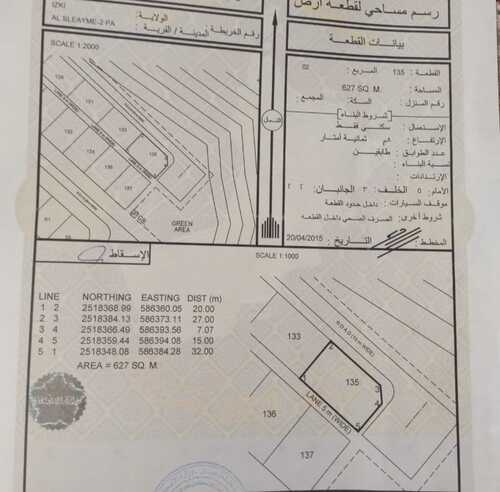 رسم مساحي لقطعة ارض
IZKI
الولاية:
AL SLEAYME-2 PA
رقم الخريطة:
المدينة / القرية:
SCALE 1:2000
بيانات القطعة
القطعة: 135 المربع:
المساحة: 627 SQ. M.
رقم المنزل: السكة: المجمع:
شروط البناء
الإستعمال: سكني فقط
الإرتفاع: ٨م ثمانية أمتار
عدد الطوابق: طابقين
نسبة البناء:
الإرتدادات:
الأمام: ٥ الخلف: ٣ الجانبان: ٢ ٢
موقف السيارات: داخل حدود القطعة
شروط أخرى: الصرف الصحي داخل القطعة
المخطط: التاريخ: 20/04/2015
الشمال
135
GREEN
AREA
الإسقاط:
SCALE 1:1000
LINE NORTHING EASTING DIST (m)
1 2 2518368.99 586360.05 20.00
2 3 2518384.13 586373.11 27.00
3 4 2518366.49 586393.56 7.07
4 5 2518359.44 586394.08 15.00
5 1 2518348.08 586384.28 32.00
AREA = 627 SQ. M.
133
ROAD (16 m WIDE)
135
3
4
5
LANE 5 m (WIDE)
136
137